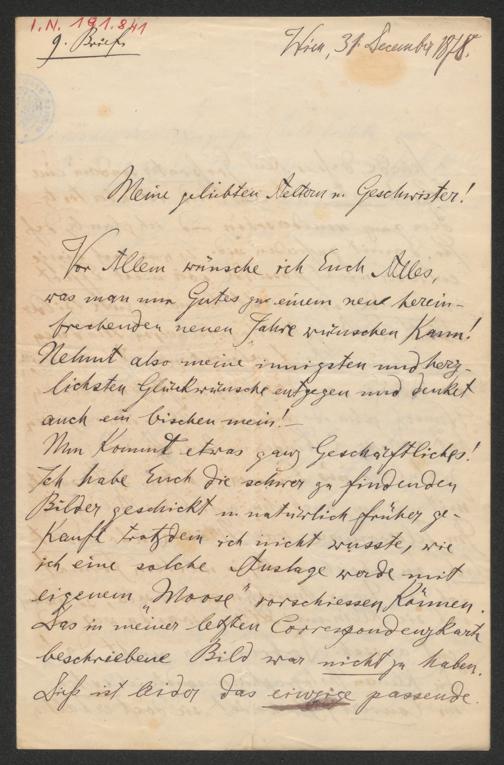 I.N. 191.841
9. Brief.
Wien, 31. December 1878.
Meine geliebten Aeltern u. Geschwister!
Vor Allem wünsche ich Euch Alles,
was man nur Gutes zu einem neu herein-
brechenden neuen Jahre wünschen kann!
Nehmt also meine innigsten und herz-
lichsten Glückwünsche entgegen und denket
auch ein bischen mein! –
Nun kommt etwas ganz Geschäftliches!
Ich habe Euch die schwer zu findenden
Bilder geschickt u. natürlich früher ge-
kauft trotzdem ich nicht wusste, wie
ich eine solche Auslage werde mit
eigenem „Moose" vorschiessen können.
Das in meiner letzten Correspondenzkarte
beschriebene Bild war nicht zu haben.
Dieß ist leider das einzige passende.